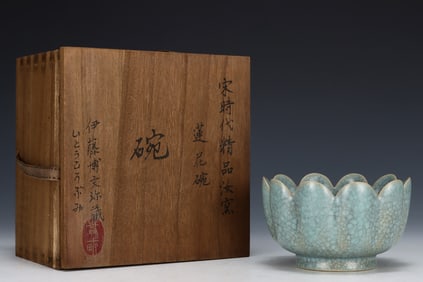 宋時代精品汝窯
蓮花碗
碗
伊藤博文珍藏
いとうひろぶみ